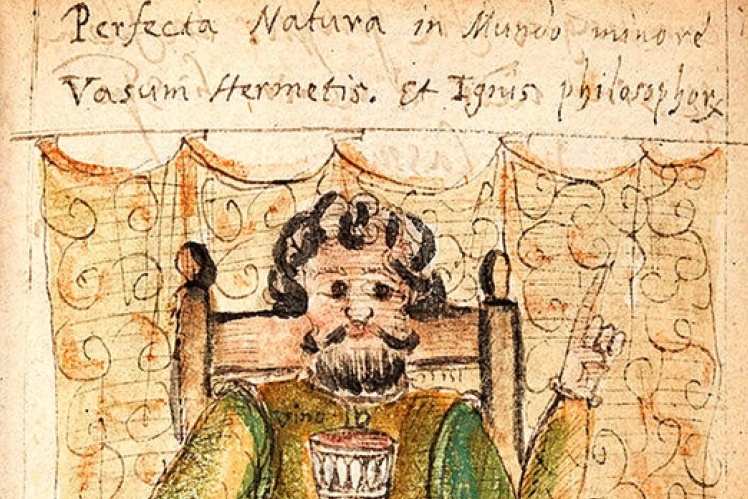 Perfecta Natura in Mundo minore
Vasum Hermetis. Et Ignis philosophor